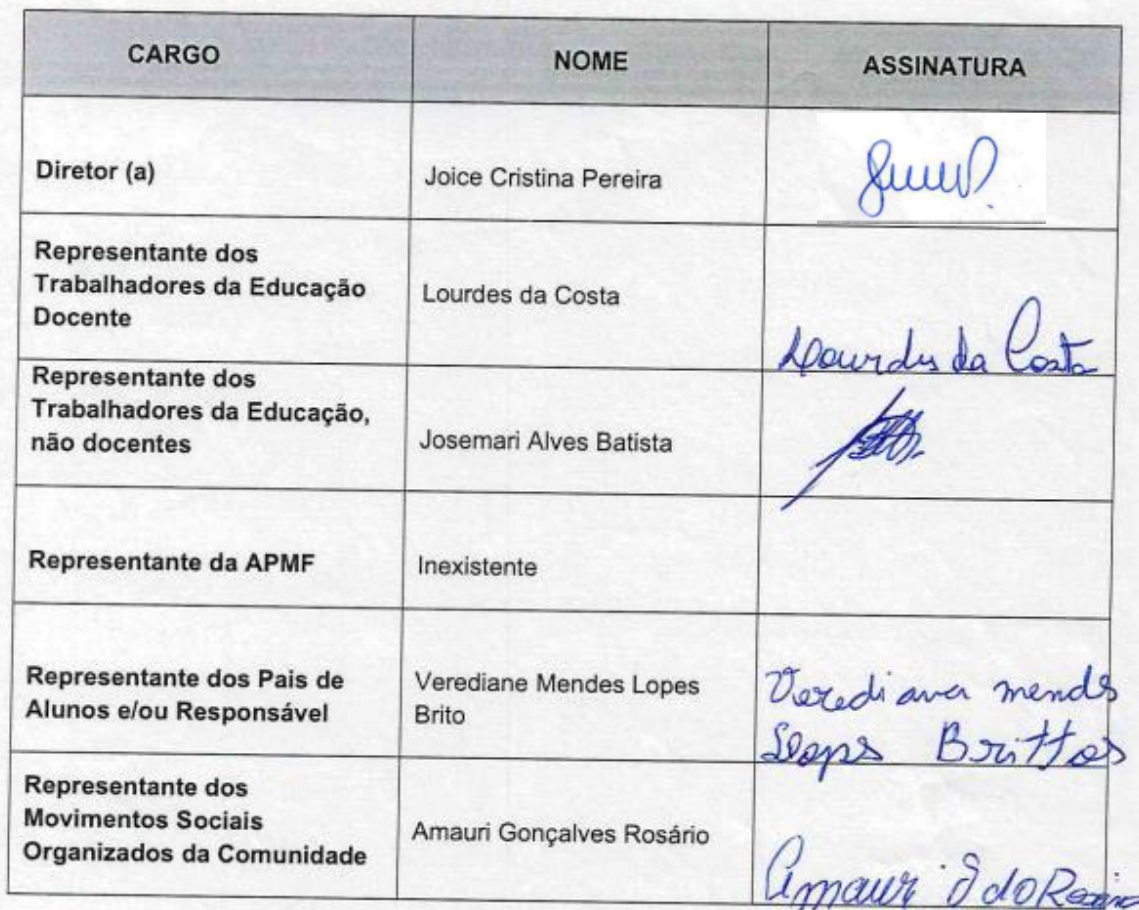 CARGO NOME ASSINATURA
Diretor (a) Joice Cristina Pereira
Representante dos
Trabalhadores da Educação
Docente
Lourdes da Costa
Lourdes da Costa
Representante dos
Trabalhadores da Educação,
não docentes
Josemari Alves Batista
Representante da APMF Inexistente
Representante dos Pais de
Alunos e/ou Responsável
Verediane Mendes Lopes
Brito
Verediana mendes
Lopes Brittos
Representante dos
Movimentos Sociais
Organizados da Comunidade
Amauri Gonçalves Rosário
Amauri G do Rosário